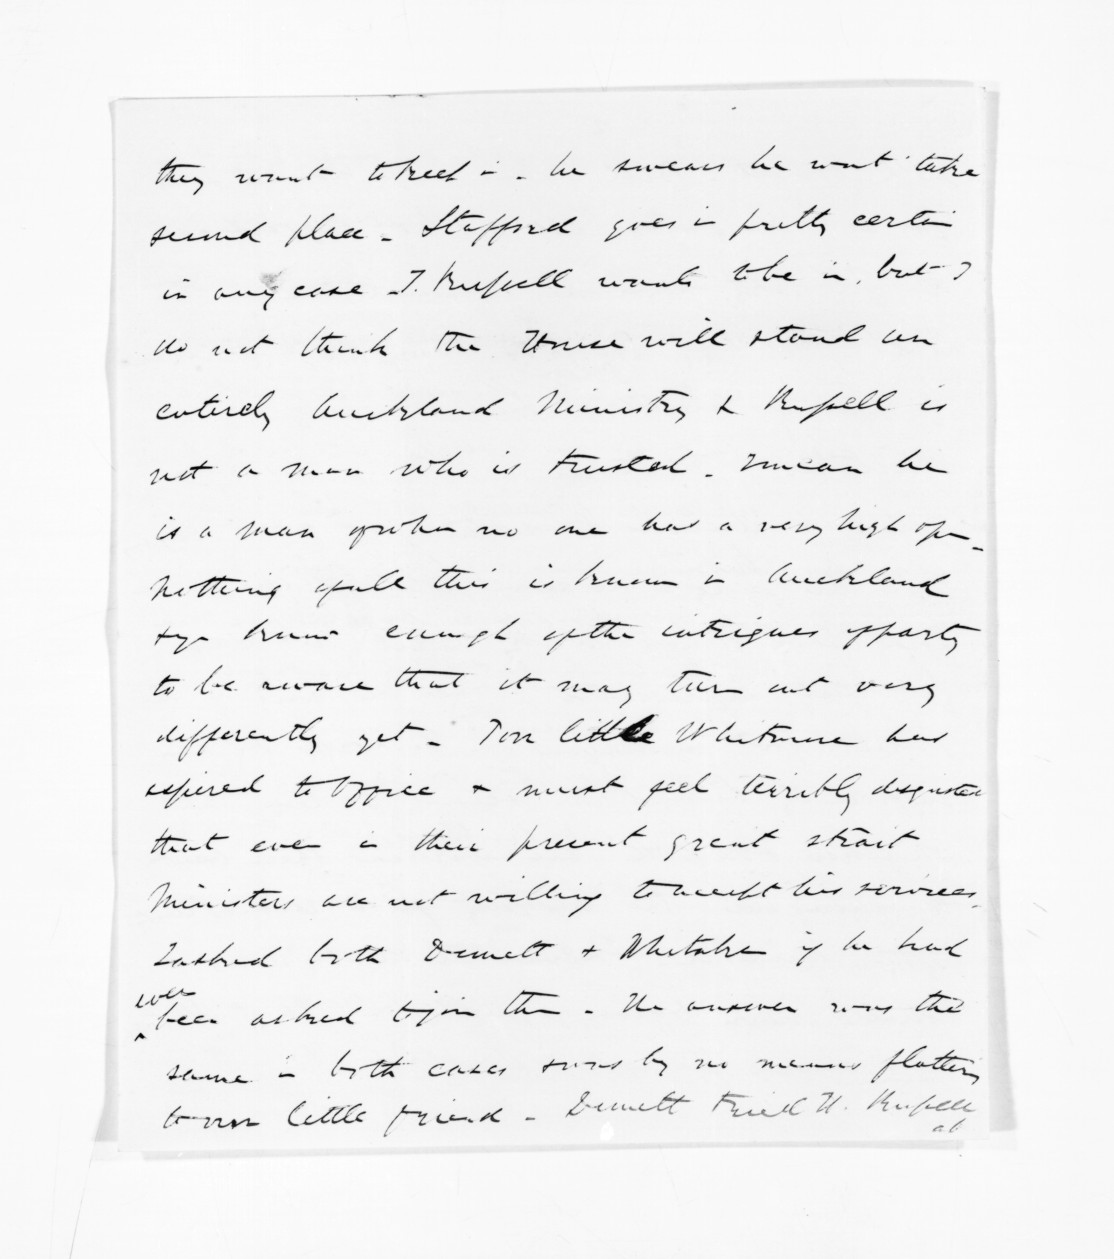 they want to keep in - he swears he wont take
second place - Stafford goes in pretty certain
in any case - T. Russell wants to be in, but I
do not think the House will stand an
entirely Auckland Ministry & Russell is
not a man who is trusted - I mean he
is a man of whom no one has a very high opn -
Nothing of all this is known in Auckland
& yr know enough of the intrigues of party
to be aware that it may turn out very
differently yet - Poor little Whitmore has
aspired to Office & must feel terribly disgusted
that even in their present great strait
Ministers are not willing to accept his services.
I asked both Domett & Whitaker if he had
ever
been asked to join them - The answer was the
same in both cases & was by no means flattering
to our little friend - Domett tried H. Russell